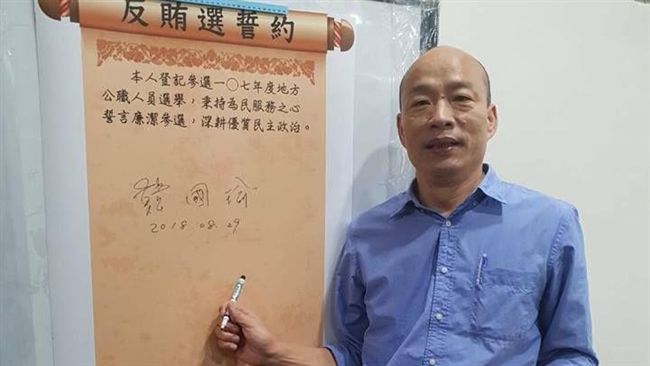 反賄選誓約
本人登記參選一〇七年度地方
公職人員選舉，秉持為民服務之心
誓言廉潔參選，深耕優質民主政治。
韓國瑜
2018.08.29